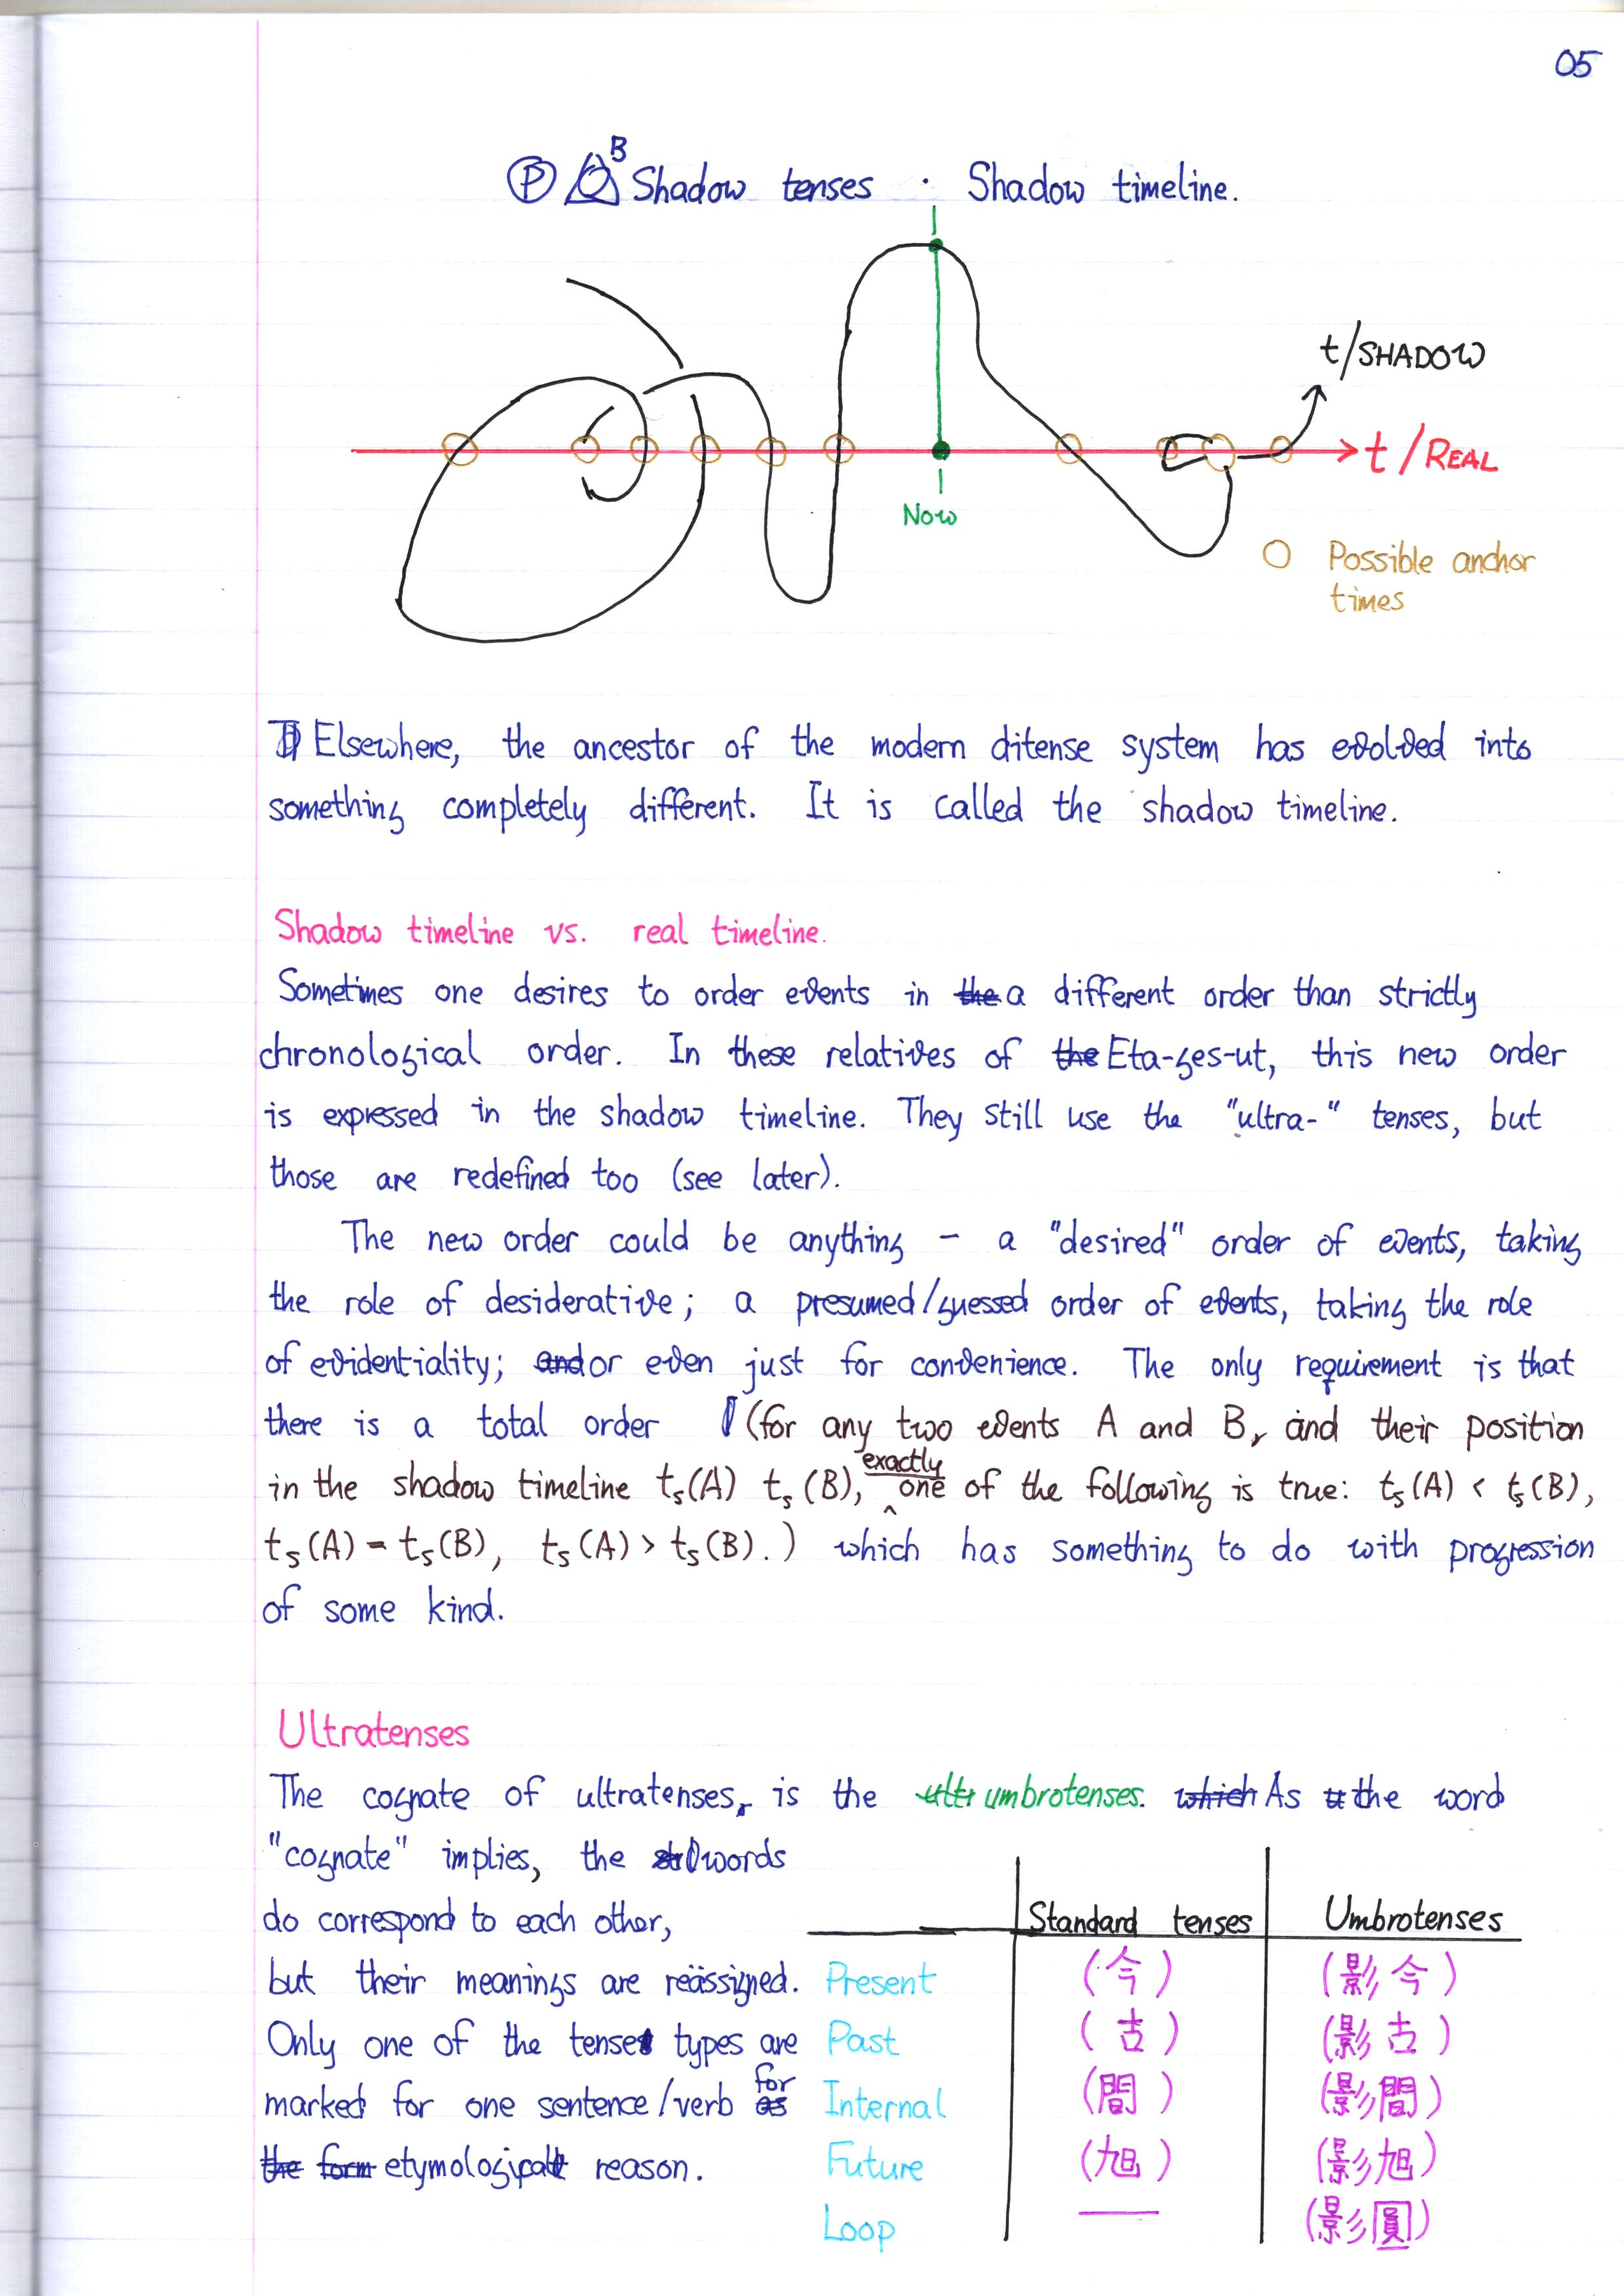 05
Ⓟ B Shadow tenses · Shadow timeline.
t/SHADOW
t/REAL
Now
Possible anchor
times
Elsewhere, the ancestor of the modern ditense system has evolved into
something completely different. It is called the shadow timeline.
Shadow timeline vs. real timeline.
Sometimes one desires to order events in the a different order than strictly
chronological order. In these relatives of the Eta-ges-ut, this new order
is expressed in the shadow timeline. They still use the "ultra-" tenses, but
those are redefined too (see later).
The new order could be anything – a "desired" order of events, taking
the role of desiderative; a presumed/guessed order of events, taking the role
of evidentiality; and or even just for convenience. The only requirement is that
there is a total order (for any two events A and B, and their position
in the shadow timeline ts(A) ts(B), exactly one of the following is true: ts(A) < ts(B),
ts(A) = ts(B), ts(A) > ts(B).) which has something to do with progression
of some kind.
Ultratenses
The cognate of ultratenses, is the ultr umbrotenses. which As the word
"cognate" implies, the words
do correspond to each other,
but their meanings are reässigned.
Only one of the tense types are
marked for one sentence/verb as for
the form etymological reason.
Standard tenses Umbrotenses
Present (今) (影今)
Past (古) (影古)
Internal (間) (影間)
Future (旭) (影旭)
Loop — (影圓)